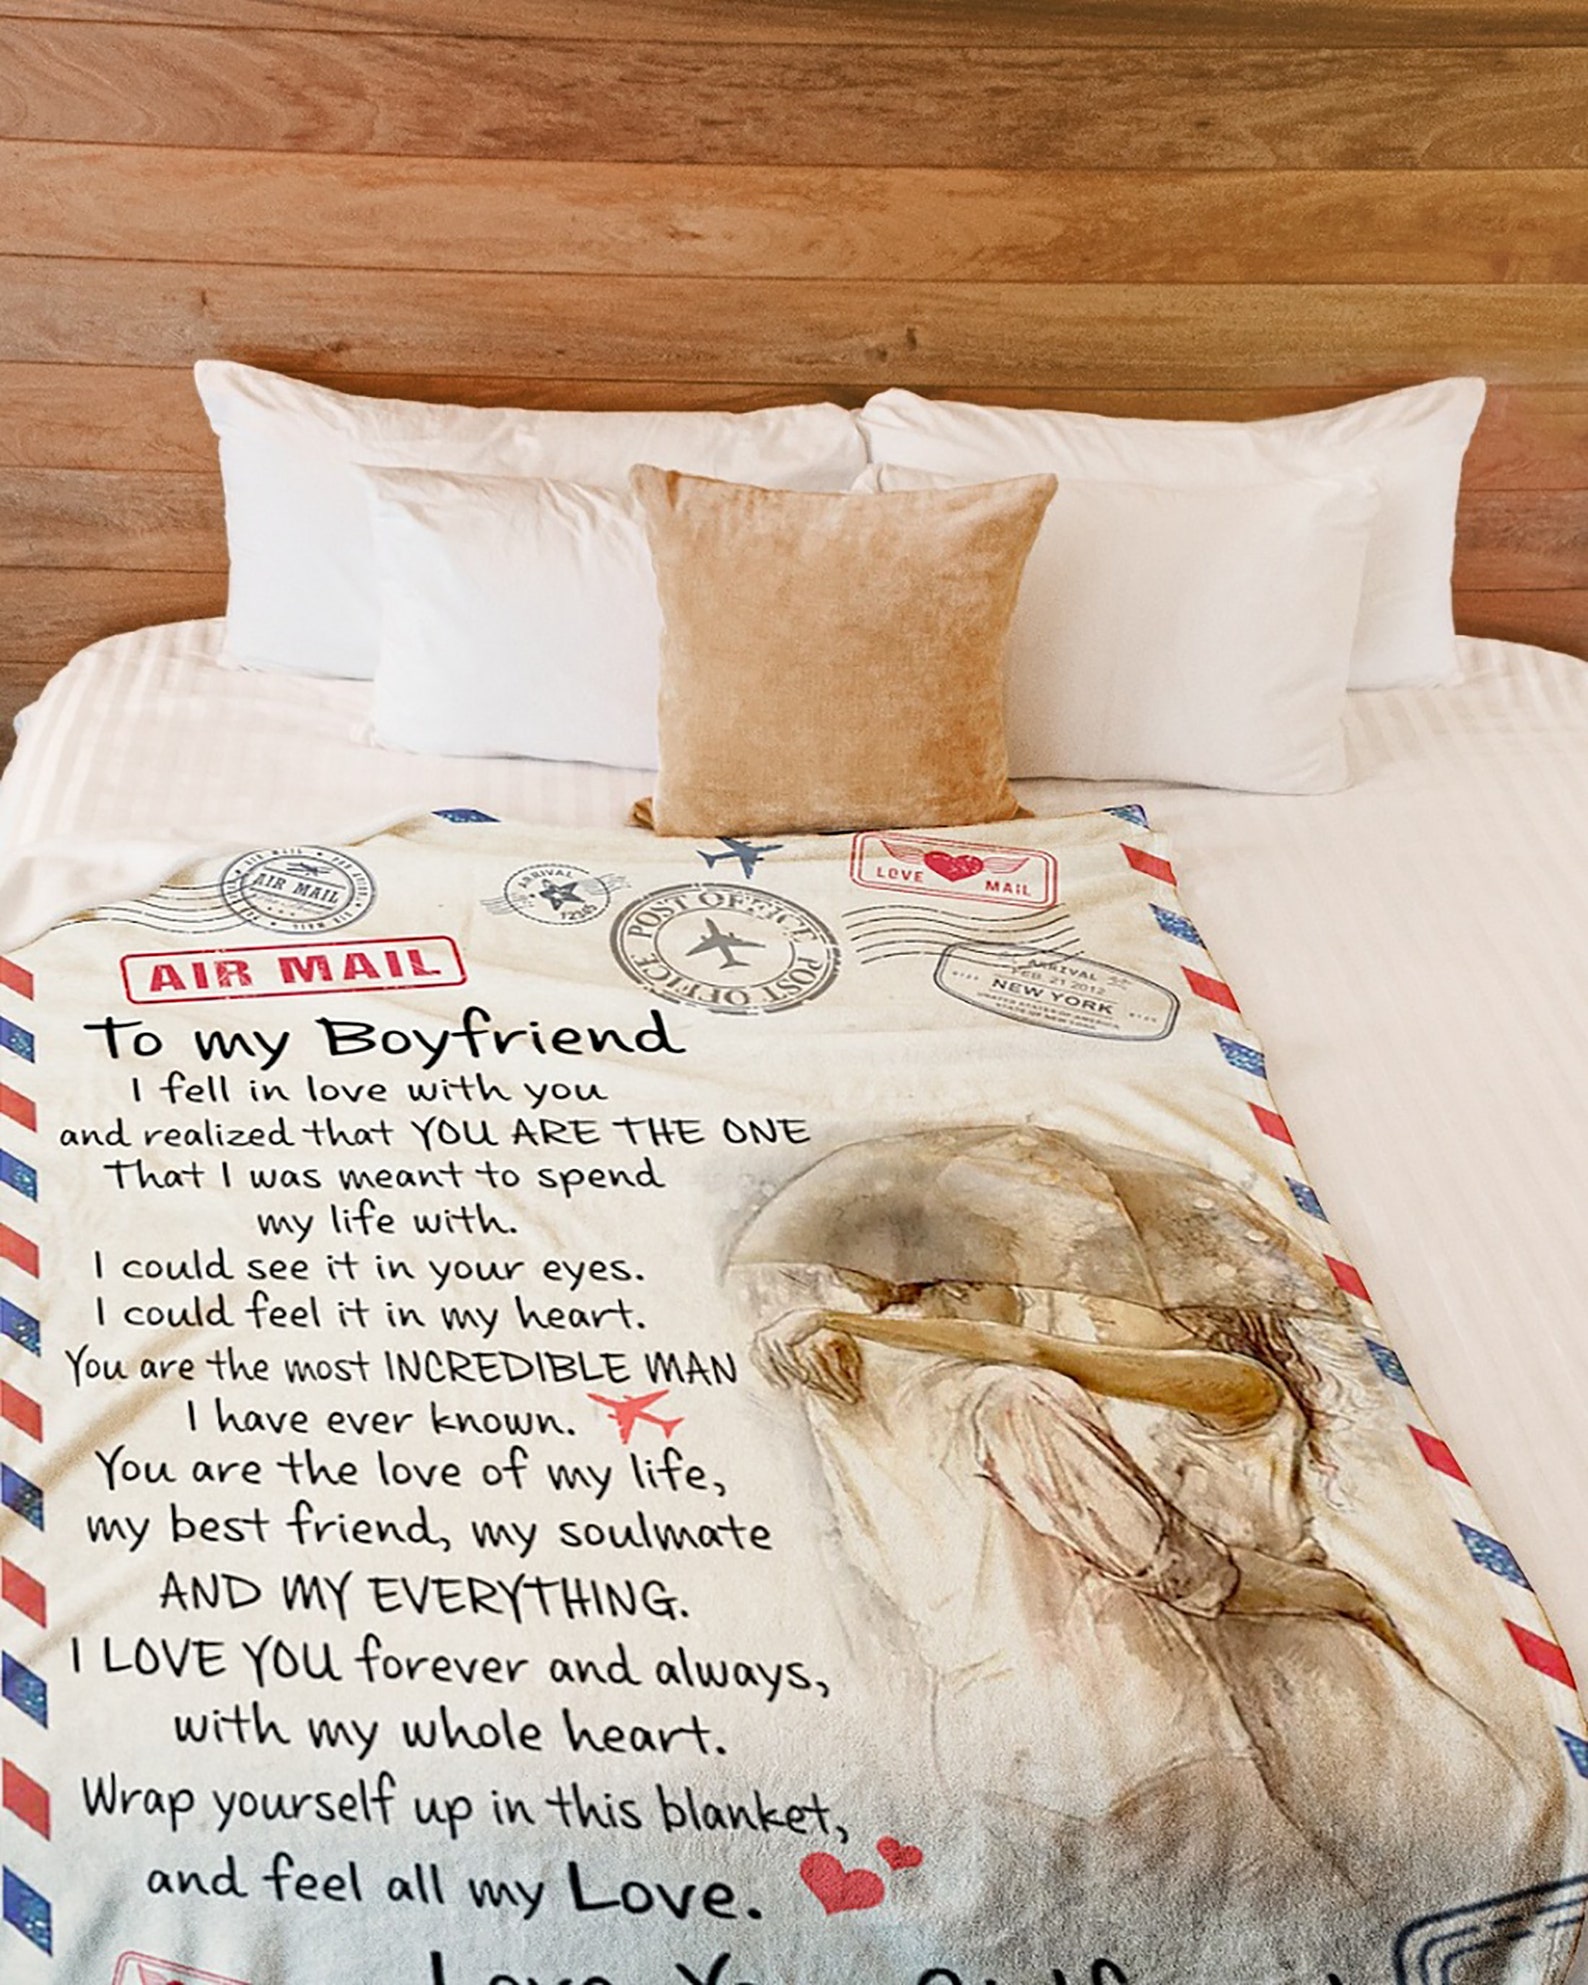 AIR MAIL
AIR MAIL
AIR MAIL
ARRIVAL
12345
POST OFFICE
POST OFFICE
LOVE MAIL
ARRIVAL
FEB. 21 2012
NEW YORK
UNITED STATES OF AMERICA
STATE OF NEW YORK
AIR MAIL
To my Boyfriend
I fell in love with you
and realized that YOU ARE THE ONE
That I was meant to spend
my life with.
I could see it in your eyes.
I could feel it in my heart.
You are the most INCREDIBLE MAN
I have ever known.
You are the love of my life,
my best friend, my soulmate
AND MY EVERYTHING.
I LOVE YOU forever and always,
with my whole heart.
Wrap yourself up in this blanket,
and feel all my Love.
Love, Your Girlfriend